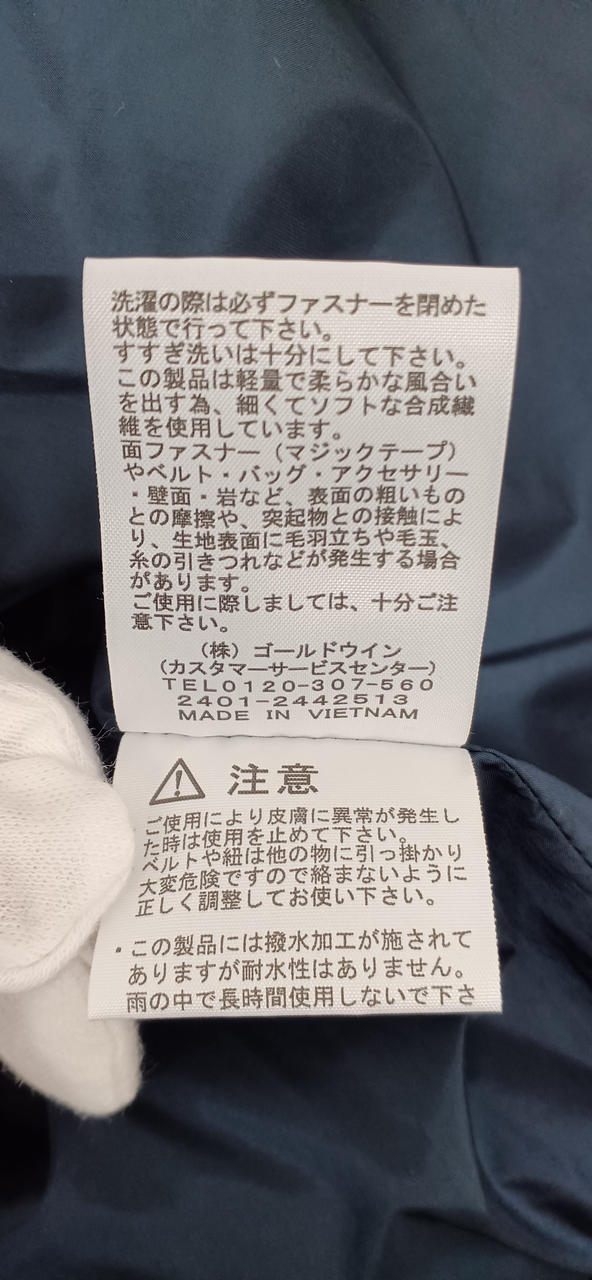 洗濯の際は必ずファスナーを閉めた
状態で行って下さい。
すすぎ洗いは十分にして下さい。
この製品は軽量で柔らかな風合い
を出す為、細くてソフトな合成繊
維を使用しています。
面ファスナー（マジックテープ）
やベルト・バッグ・アクセサリー
・壁面・岩など、表面の粗いもの
との摩擦や、突起物との接触によ
り、生地表面に毛羽立ちや毛玉、
糸の引きつれなどが発生する場合
があります。
ご使用に際しましては、十分ご注
意下さい。
（株）ゴールドウイン
（カスタマーサービスセンター）
TEL0120-307-560
2401-2442513
MADE IN VIETNAM
注意
ご使用により皮膚に異常が発生し
た時は使用を止めて下さい。
ベルトや紐は他の物に引っ掛かり
大変危険ですので絡まないように
正しく調整してお使い下さい。
・この製品には撥水加工が施されて
ありますが耐水性はありません。
雨の中で長時間使用しないで下さ